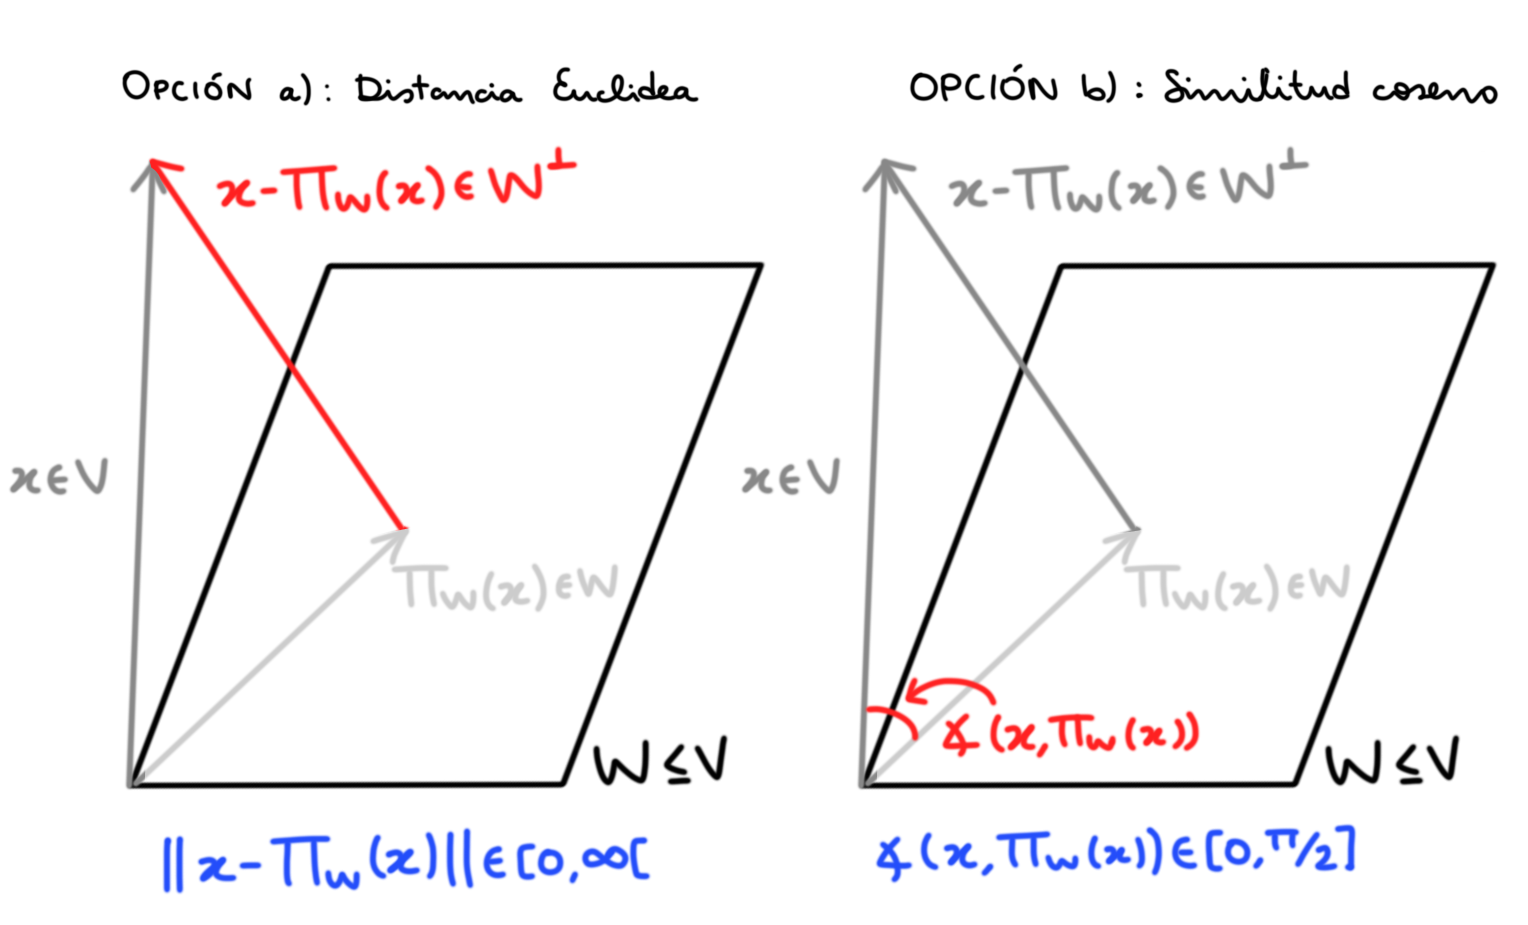 OPCIÓN a): Distancia Euclidea
x-Π_W(x)∈W^⊥
x∈V
Π_W(x)∈W
W≤V
||x-Π_W(x)||∈[0,∞[
OPCIÓN b): Similitud coseno
x-Π_W(x)∈W^⊥
x∈V
Π_W(x)∈W
∡(x,Π_W(x))
W≤V
∡(x,Π_W(x))∈[0,π/2]